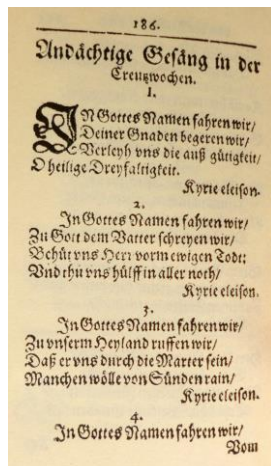 186.
Andächtige Gesäng in der
Creutzwochen.
1.
IN Gottes Namen fahren wir/
Deiner Gnaden begeren wir/
Verleyh vns die auß gütigkeit/
O heilige Dreyfaltigkeit.
Kyrie eleison.
2.
In Gottes Namen fahren wir/
Zu Gott dem Vatter schreyen wir/
Behüt vns Herr vorm ewigen Todt:
Vnd thu vns hülff in aller noth/
Kyrie eleison.
3.
In Gottes Namen fahren wir/
Zu vnserm Heyland ruffen wir/
Daß er vns durch die Marter sein/
Manchen wölle von Sünden rain/
Kyrie eleison.
4.
In Gottes Namen fahren wir/
Vom